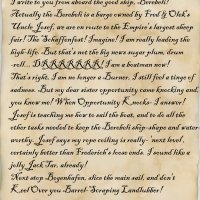 I write to you from aboard the good ship, Berebeli!
Actually the Berebeli is a barge owned by Fred & Olek's
Uncle Josef, we are on route to the Empire's largest sheep
fair! The 'Schaffenfast! Imagine! I am really leading the
high-life. But that's not the big news sugar plum, drum
roll... DRRRRRRRR! I am a boatman now!
That's right, I am no longer a Burner. I still feel a tinge of
sadness. But my dear sister opportunity came knocking and
you know me! When Opportunity Knocks- I answer!
Josef is teaching me how to sail the boat, and to do all the
other tasks needed to keep the Berebeli ship-shape and water-
worthy. Josef says my rope coiling is really- next level,
certainly better than Frederich's loose ends. I sound like a
jolly Jack Tar, already!
Next stop Bogenhafen, slice the main sail, and don't
Keel Over you Barrel-Scraping Landlubber!